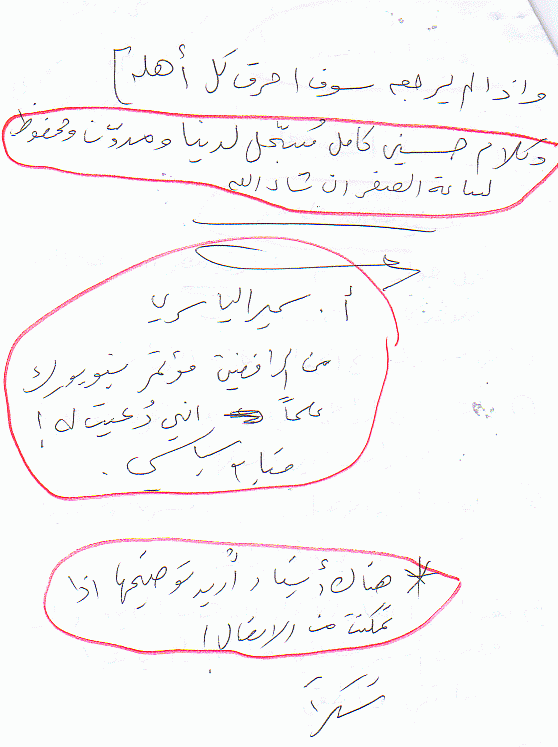 واذا لم يرجعه سوف احرق كل أهله]
وكلام حسين كامل مُسجّل لدينا ومدوّن ومحفوظ
لساعة الصفر ان شاء الله
أ. سمير الياسري
من الرافضين مؤتمر نيويورك
علماً اني دُعيت له!
سياسي.
* هناك أشياء أريد توضيحها اذا
تمكنت من الاتصال!
شكراً